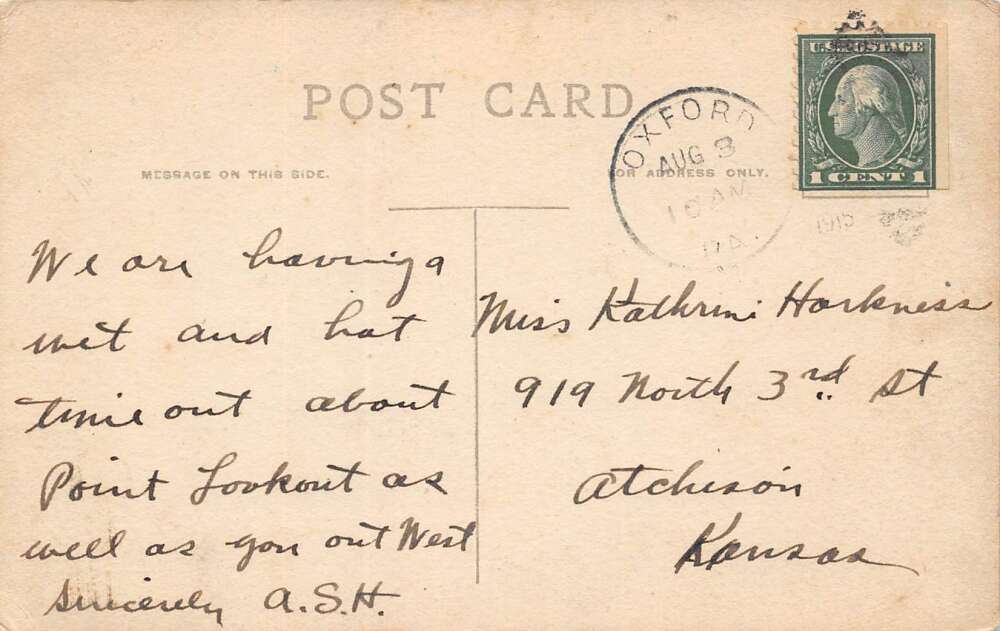 U.S. POSTAGE
1 CENT 1
POST CARD
OXFORD
AUG 3
10 AM
MESSAGE ON THIS SIDE.
FOR ADDRESS ONLY.
We are having a
wet and hot
time out about
Point Lookout as
well as you out West
Sincerely A.S.H.
Miss Kathrine Harkness
919 North 3rd St
Atchison
Kansas